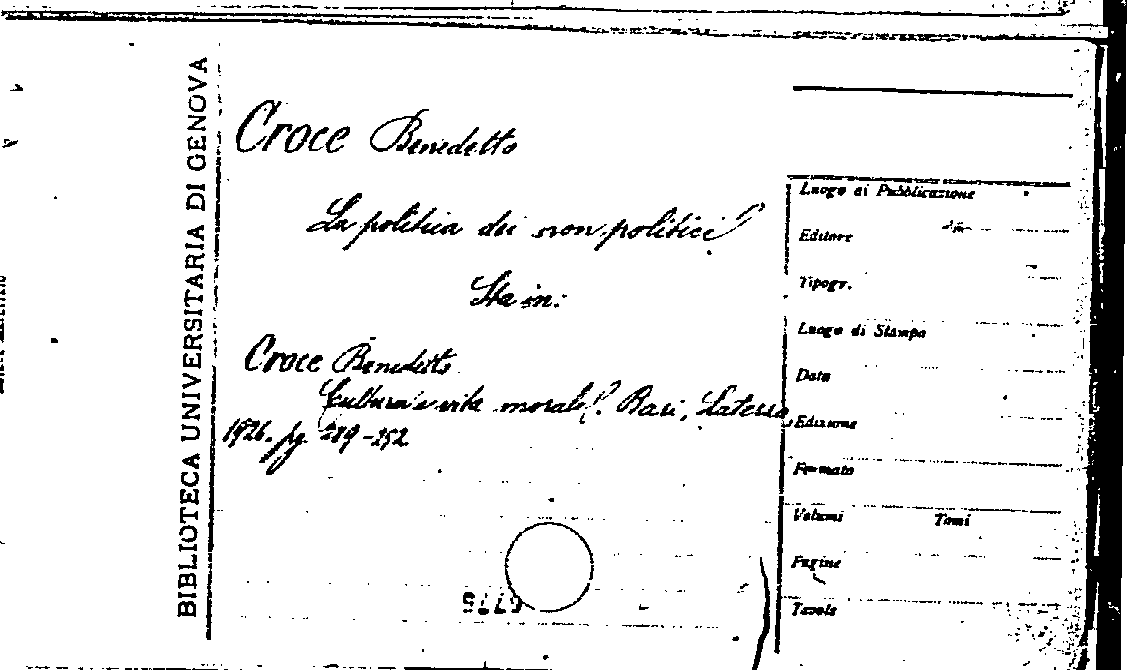 BIBLIOTECA UNIVERSITARIA DI GENOVA
Croce Benedetto
La politica dei non politici.
Sta in:
Croce Benedetto
Cultura e vita morale. Bari, Laterza,
1926. pg. 289-292
Luogo di Pubblicazione
Editore
Tipogr.
Luogo di Stampa
Data
Edizione
Formato
Volumi Tomi
Pagine
Tavole